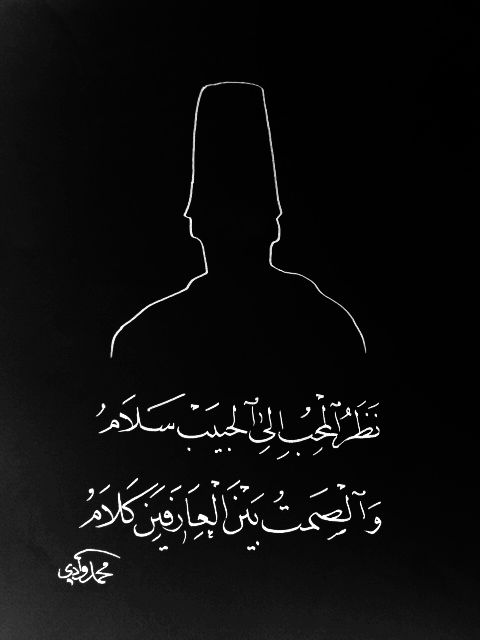 نَظَرُ ٱلْمُحِبِ إِلىَ ٱلْحَبِيَبْ سَلَامُ
وَٱلْصَمتُ بَيْنَ الْعِاَرِفَيِنَ كَلَامُ